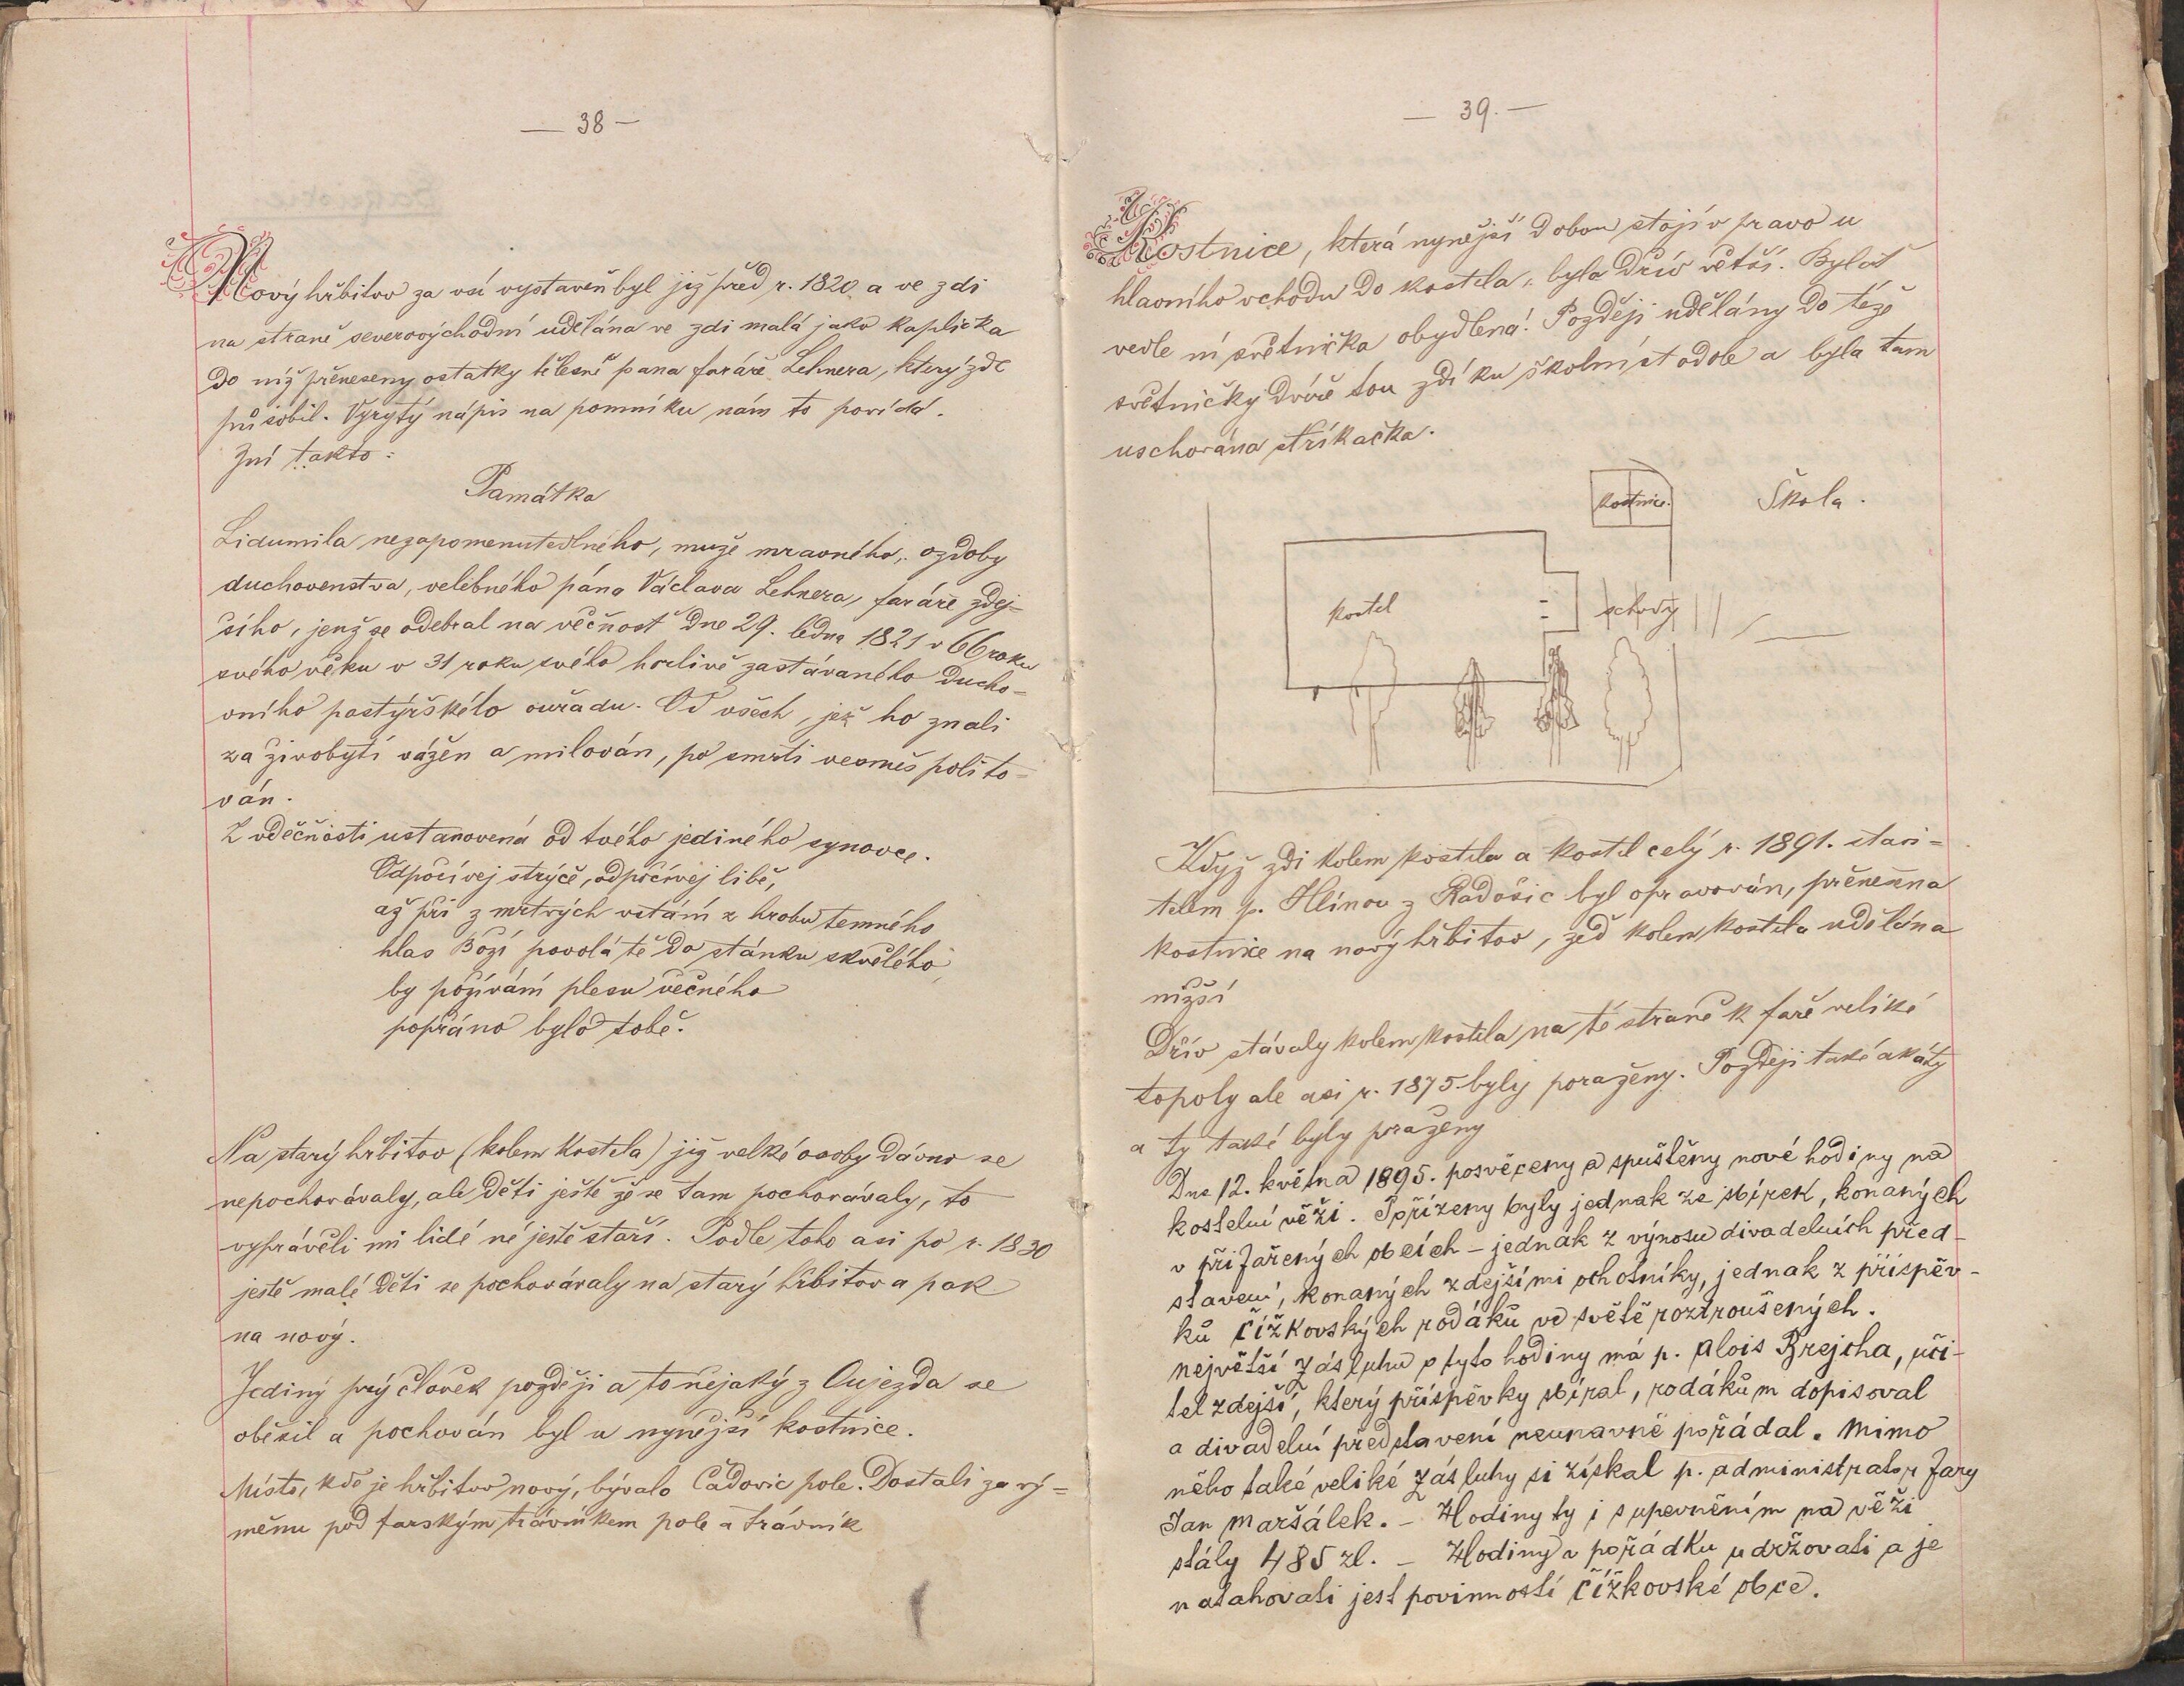 — 38 —
Nový hřbitov za vsí vystavěn byl již před r. 1820 a ve zdi
na straně severovýchodní udělána ve zdi malá jako kaplička
do níž přeneseny ostatky tělesné pana faráře Lehnera, který zde
působil. Vyrytý nápis na pomníku nám to povídá.
Zní takto:
Památka
Lidumila nezapomenutedlného, muže mravného, ozdoby
duchovenstva, velebného pána Václava Lehnera, faráře zdej-
šího, jenž se odebral na věčnost dne 29. ledna 1821 v 66 roku
svého věku v 31 roku svého horlivě zastávaného ducho-
vního pastýřského ouřadu. Od všech, jež ho znali
za živobytí vážen a milován, po smrti vesměs polito-
ván.
Z vděčnosti ustanovená od tvého jediného synovce.
Odpočívej strýče, odpočívej libě,
až při z mrtvých vstání z hrobu temného
hlas Boží povolá tě do stánku skvělého,
by požívání plesu věčného
popřáno bylo tobě.
Na starý hřbitov (kolem kostela) již velké osoby dávno se
nepochovávaly, ale děti ještě že se tam pochovávaly, to
vyprávěli mi lidé né ještě staří. Podle toho asi po r. 1830
ještě malé děti se pochovávaly na starý hřbitov a pak
na nový.
Jediný prý člověk později a to nějaký z Oujezda se
oběsil a pochován byl u nynější kostnice.
Místo, kde je hřbitov nový, bývalo Čadovic pole. Dostali za vý-
měnu pod farským trávníkem pole a trávník
— 39. —
Kostnice, která nynější dobou stojí v pravo u
hlavního vchodu do kostela, byla dřív větší. Byla
vedle ní světnička obydlená! Později udělány do téže
světničky dvéře tou zdí ku školní stodole a byla tam
uschována stříkačka.
kostnice.
Škola.
kostel
schody
Když zdi kolem kostela a kostel celý r. 1891. stavi-
telem p. Hlínou z Radošic byl opravován, přenešena
kostnice na nový hřbitov, zeď kolem kostela udělána
nižší
Dřív stávaly kolem kostela na té straně k faře veliké
topoly ale asi r. 1875. byly poraženy. Později také akáty
a ty také byly poraženy
Dne 12. května 1895. posvěceny a spuštěny nové hodiny na
kostelní věži. Pořízeny byly jednak ze sbírek, konaných
v přifařených obcích – jednak z výnosu divadelních před-
stavení, konaných zdejšími ochotníky, jednak z příspěv-
ků čížkovských rodáků ve světě roztroušených.
největší zásluhu o tyto hodiny má p. Alois Brejcha, uči-
tel zdejší, který příspěvky sbíral, rodákům dopisoval
a divadelní představení neunavně pořádal. Mimo
něho také veliké zásluhy si získal p. administrator fary
Jan Maršálek. – Hodiny ty i s upevněním na věži
stály 485 zl. – Hodiny v pořádku udržovati a je
natahovati jest povinností čížkovské obce.